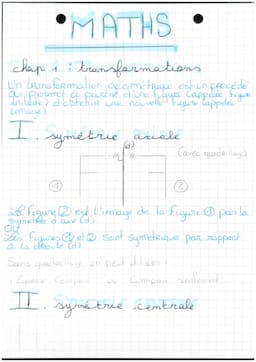 MATHS
chap 1 : transformations
Un transformation géométrique est un procédé
qui permet à partir d'une figure (appelée figure
initiale) d'obtenir une nouvelle figure (appelée
image)
I. symétrie axiale
(d)
(avec quadrillage)
① ②
La Figure ② est l'image de la Figure ① par la
symétrie d'axe (d)
OU
Les Figures ① et ② sont symétriques par rapport
à la droite (d)
Sans quadrillage, on peut utiliser :
Equerre Compas ou Compas seulement
II. symétrie centrale